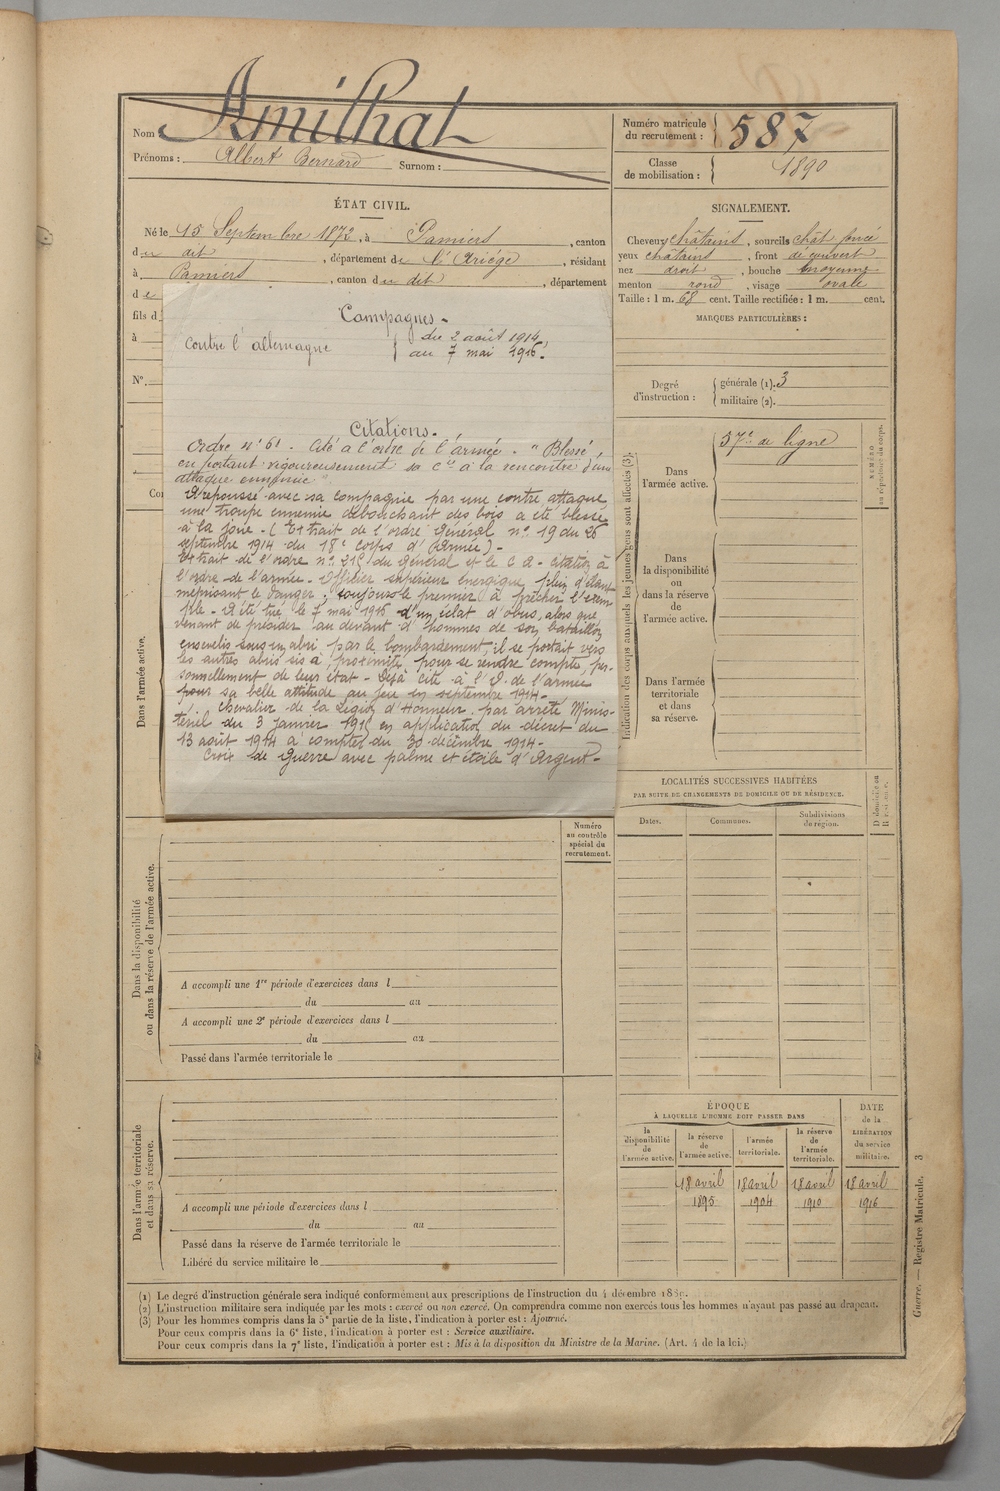 Nom : Amilhat
Prénoms : Albert Bernard Surnom :
Numéro matricule
du recrutement : 587
Classe
de mobilisation : 1890
ÉTAT CIVIL.
Né le 15 Septembre 1872, à Pamiers, canton
du dit, département de l'Ariège, résidant
à Pamiers, canton du dit, département
de
fils d
à
N°.
Co
SIGNALEMENT.
Cheveux châtains, sourcils chât foncé
yeux châtains, front découvert
nez droit, bouche moyenne
menton rond, visage ovale
Taille : 1 m. 68 cent. Taille rectifiée : 1 m. cent.
MARQUES PARTICULIÈRES :
Degré
d'instruction :
générale (1). 3
militaire (2).
Campagnes.-
contre l'allemagne
du 2 août 1914,
au 7 mai 1916.
Citations.-
Ordre n° 61. Cité à l'ordre de l'armée - " Blessé
en portant vigoureusement sa Cie à la rencontre d'une
attaque ennemie "
A repoussé avec sa compagnie par une contre attaque
une troupe ennemie débouchant des bois a été blessé
à la joue - ( Extrait de l'ordre Général n° 19 du 26
septembre 1914 du 18e Corps d'Armée) -
Extrait de l'ordre n° 215 du général et le C A - citation à
l'ordre de l'armée - Officier supérieur énergique, plein d'élan
méprisant le danger, toujours le premier à prêcher l'exem-
ple - A été tué le 7 mai 1916 d'un éclat d'obus, alors que
venant de présider au devant d'hommes de son bataillon
ensevelis sous un abri par le bombardement, il se portait vers
les autres abris sis à proximité pour se rendre compte per-
sonnellement de leur état - Déjà cité à l'O. de l'armée
pour sa belle attitude au feu en septembre 1914 -
Chevalier de la Légion d'Honneur par arrêté Minis-
tériel du 3 janvier 1915 en application du décret du
13 août 1914 à compter du 30 décembre 1914 -
Croix de Guerre avec palme et étoile d'Argent -
Dans l'armée active.
Indication des corps auxquels les jeunes gens sont affectés (3).
Dans
l'armée active.
57e de ligne
NUMÉRO
au répertoire du corps.
Dans
la disponibilité
ou
dans la réserve
de
l'armée active.
Dans l'armée
territoriale
et dans
sa réserve.
LOCALITÉS SUCCESSIVES HABITÉES
PAR SUITE DE CHANGEMENTS DE DOMICILE OU DE RÉSIDENCE.
Dates.
Communes.
Subdivisions
de région.
D domicile ou
R résidence.
Numéro
au contrôle
spécial du
recrutement.
Dans la disponibilité
ou dans la réserve de l'armée active.
A accompli une 1re période d'exercices dans l
du au
A accompli une 2e période d'exercices dans l
du au
Passé dans l'armée territoriale le
Dans l'armée territoriale
et dans sa réserve.
A accompli une période d'exercices dans l
du au
Passé dans la réserve de l'armée territoriale le
Libéré du service militaire le
ÉPOQUE
À LAQUELLE L'HOMME DOIT PASSER DANS
la
disponibilité
de
l'armée active.
la réserve
de
l'armée active.
l'armée
territoriale.
la réserve
de
l'armée
territoriale.
DATE
de la
LIBÉRATION
du service
militaire.
18 avril 18 avril 18 avril 18 avril
1895 1904 1910 1916
(1) Le degré d'instruction générale sera indiqué conformément aux prescriptions de l'instruction du 4 décembre 1889.
(2) L'instruction militaire sera indiquée par les mots : exercé ou non exercé. On comprendra comme non exercés tous les hommes n'ayant pas passé au drapeau.
(3) Pour les hommes compris dans la 5e partie de la liste, l'indication à porter est : Ajourné.
Pour ceux compris dans la 6e liste, l'indication à porter est : Service auxiliaire.
Pour ceux compris dans la 7e liste, l'indication à porter est : Mis à la disposition du Ministre de la Marine. (Art. 4 de la loi.)
Guerre. — Registre Matricule. 3